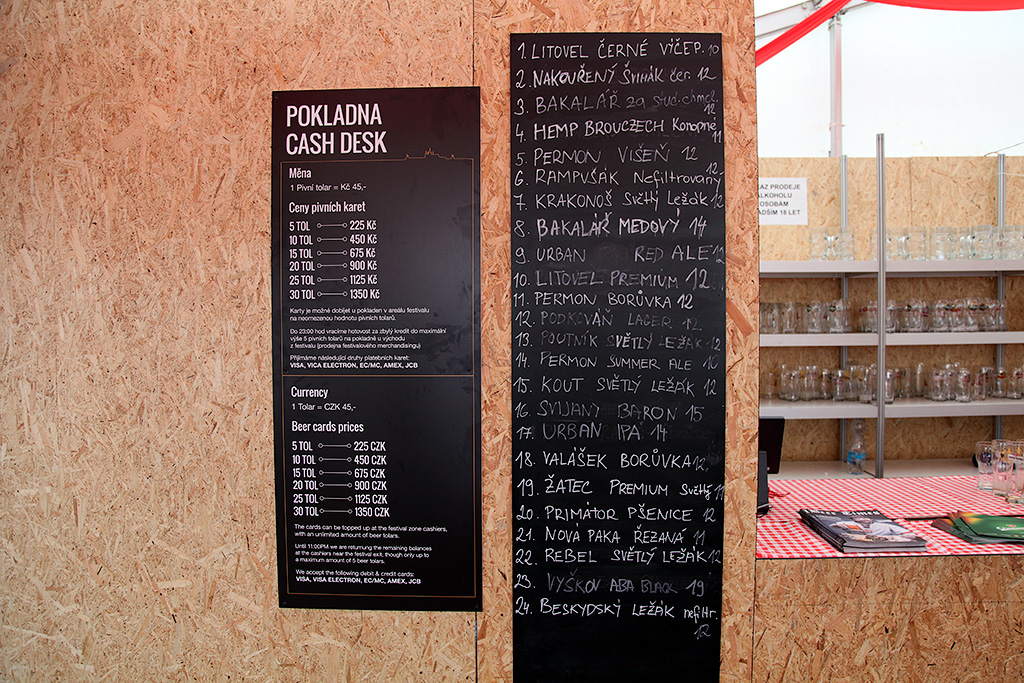 POKLADNA
CASH DESK
Měna
1 Pivní tolar = Kč 45,-
Ceny pivních karet
5 TOL 225 Kč
10 TOL 450 Kč
15 TOL 675 Kč
20 TOL 900 Kč
25 TOL 1125 Kč
30 TOL 1350 Kč
Karty je možné dobíjet u pokladen v areálu festivalu
na neomezenou hodnotu pivních tolarů.
Do 23:00 hod vracíme hotovost za zbylý kredit do maximální
výše 5 pivních tolarů na pokladně u východu
z festivalu (prodejna festivalového merchandisingu)
Přijímáme následující druhy platebních karet:
VISA, VICA ELECTRON, EC/MC, AMEX, JCB
Currency
1 Tolar = CZK 45,-
Beer cards prices
5 TOL 225 CZK
10 TOL 450 CZK
15 TOL 675 CZK
20 TOL 900 CZK
25 TOL 1125 CZK
30 TOL 1350 CZK
The cards can be topped up at the festival zone cashiers,
with an unlimited amount of beer tolars.
Until 11:00PM we are returning the remaining balances
at the cashiers near the festival exit, though only up to
a maximum amount of 5 beer tolars.
We accept the following debit & credit cards:
VISA, VISA ELECTRON, EC/MC, AMEX, JCB
1. LITOVEL ČERNÉ VÝČEP. 10
2. NAKOUŘENÝ ŠVIHÁK čer. 12
3. BAKALÁŘ za stud.chmel.
12
4. HEMP BROUCZECH Konopné
11
5. PERMON VIŠEŇ 12
6. RAMPUŠÁK Nefiltrovaný
12
7. KRAKONOŠ Světlý Ležák 12
8. BAKALÁŘ MEDOVÝ 14
9. URBAN RED ALE 12
10. LITOVEL PREMIUM 12
11. PERMON BORŮVKA 12
12. PODKOVÁŇ LAGER 12
13. POUTNÍK SVĚTLÝ LEŽÁK 12
14. PERMON SUMMER ALE 10
15. KOUT SVĚTLÝ LEŽÁK 12
16. SVIJANY BARON 15
17. URBAN IPA 14
18. VALÁŠEK BORŮVKA 12
19. ŽATEC PREMIUM Světlý
20. PRIMÁTOR PŠENICE 12
21. NOVÁ PAKA ŘEZANÁ 11
22. REBEL SVĚTLÝ LEŽÁK 12
23. VYŠKOV ABA BLACK 19
24. BESKYDSKÝ LEŽÁK nefiltr.
12
AZ PRODEJE
LKOHOLU
OSOBÁM
ADŠÍM 18 LET